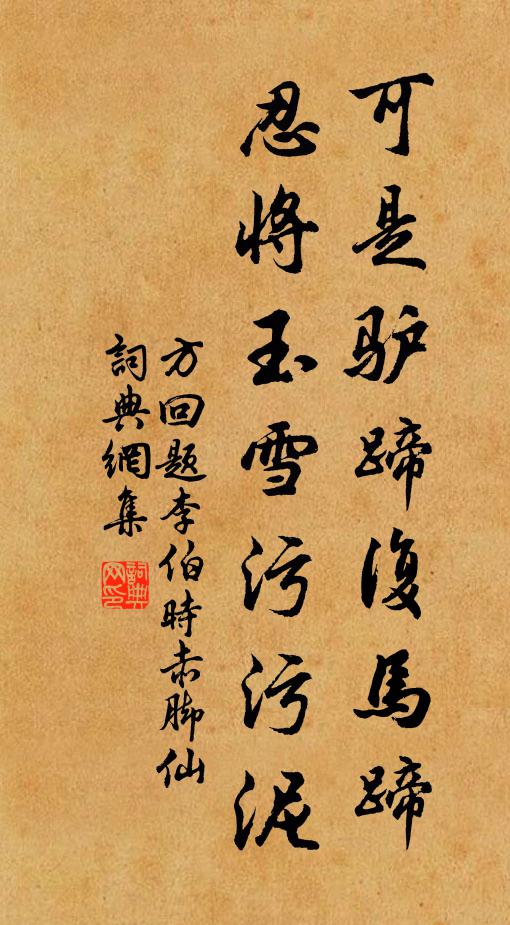 可是驴蹄復馬蹄
忍将玉雪污污泥
方回题李伯時赤脚仙
詞典網集
詞典网印